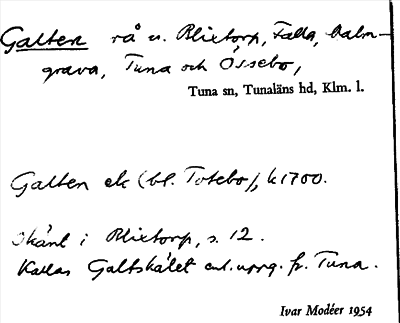 Galten rå n. Blixtorp, Falla, Malm-
grava, Tuna och Össebo,
Tuna sn, Tunaläns hd, Klm. l.
Galten ek (bl. Totebo), k 1700.
i Blixtorp, s. 12.
Kallas Galtskálet enl. uppg. fr. Tuna.
Ivar Modéer 1954